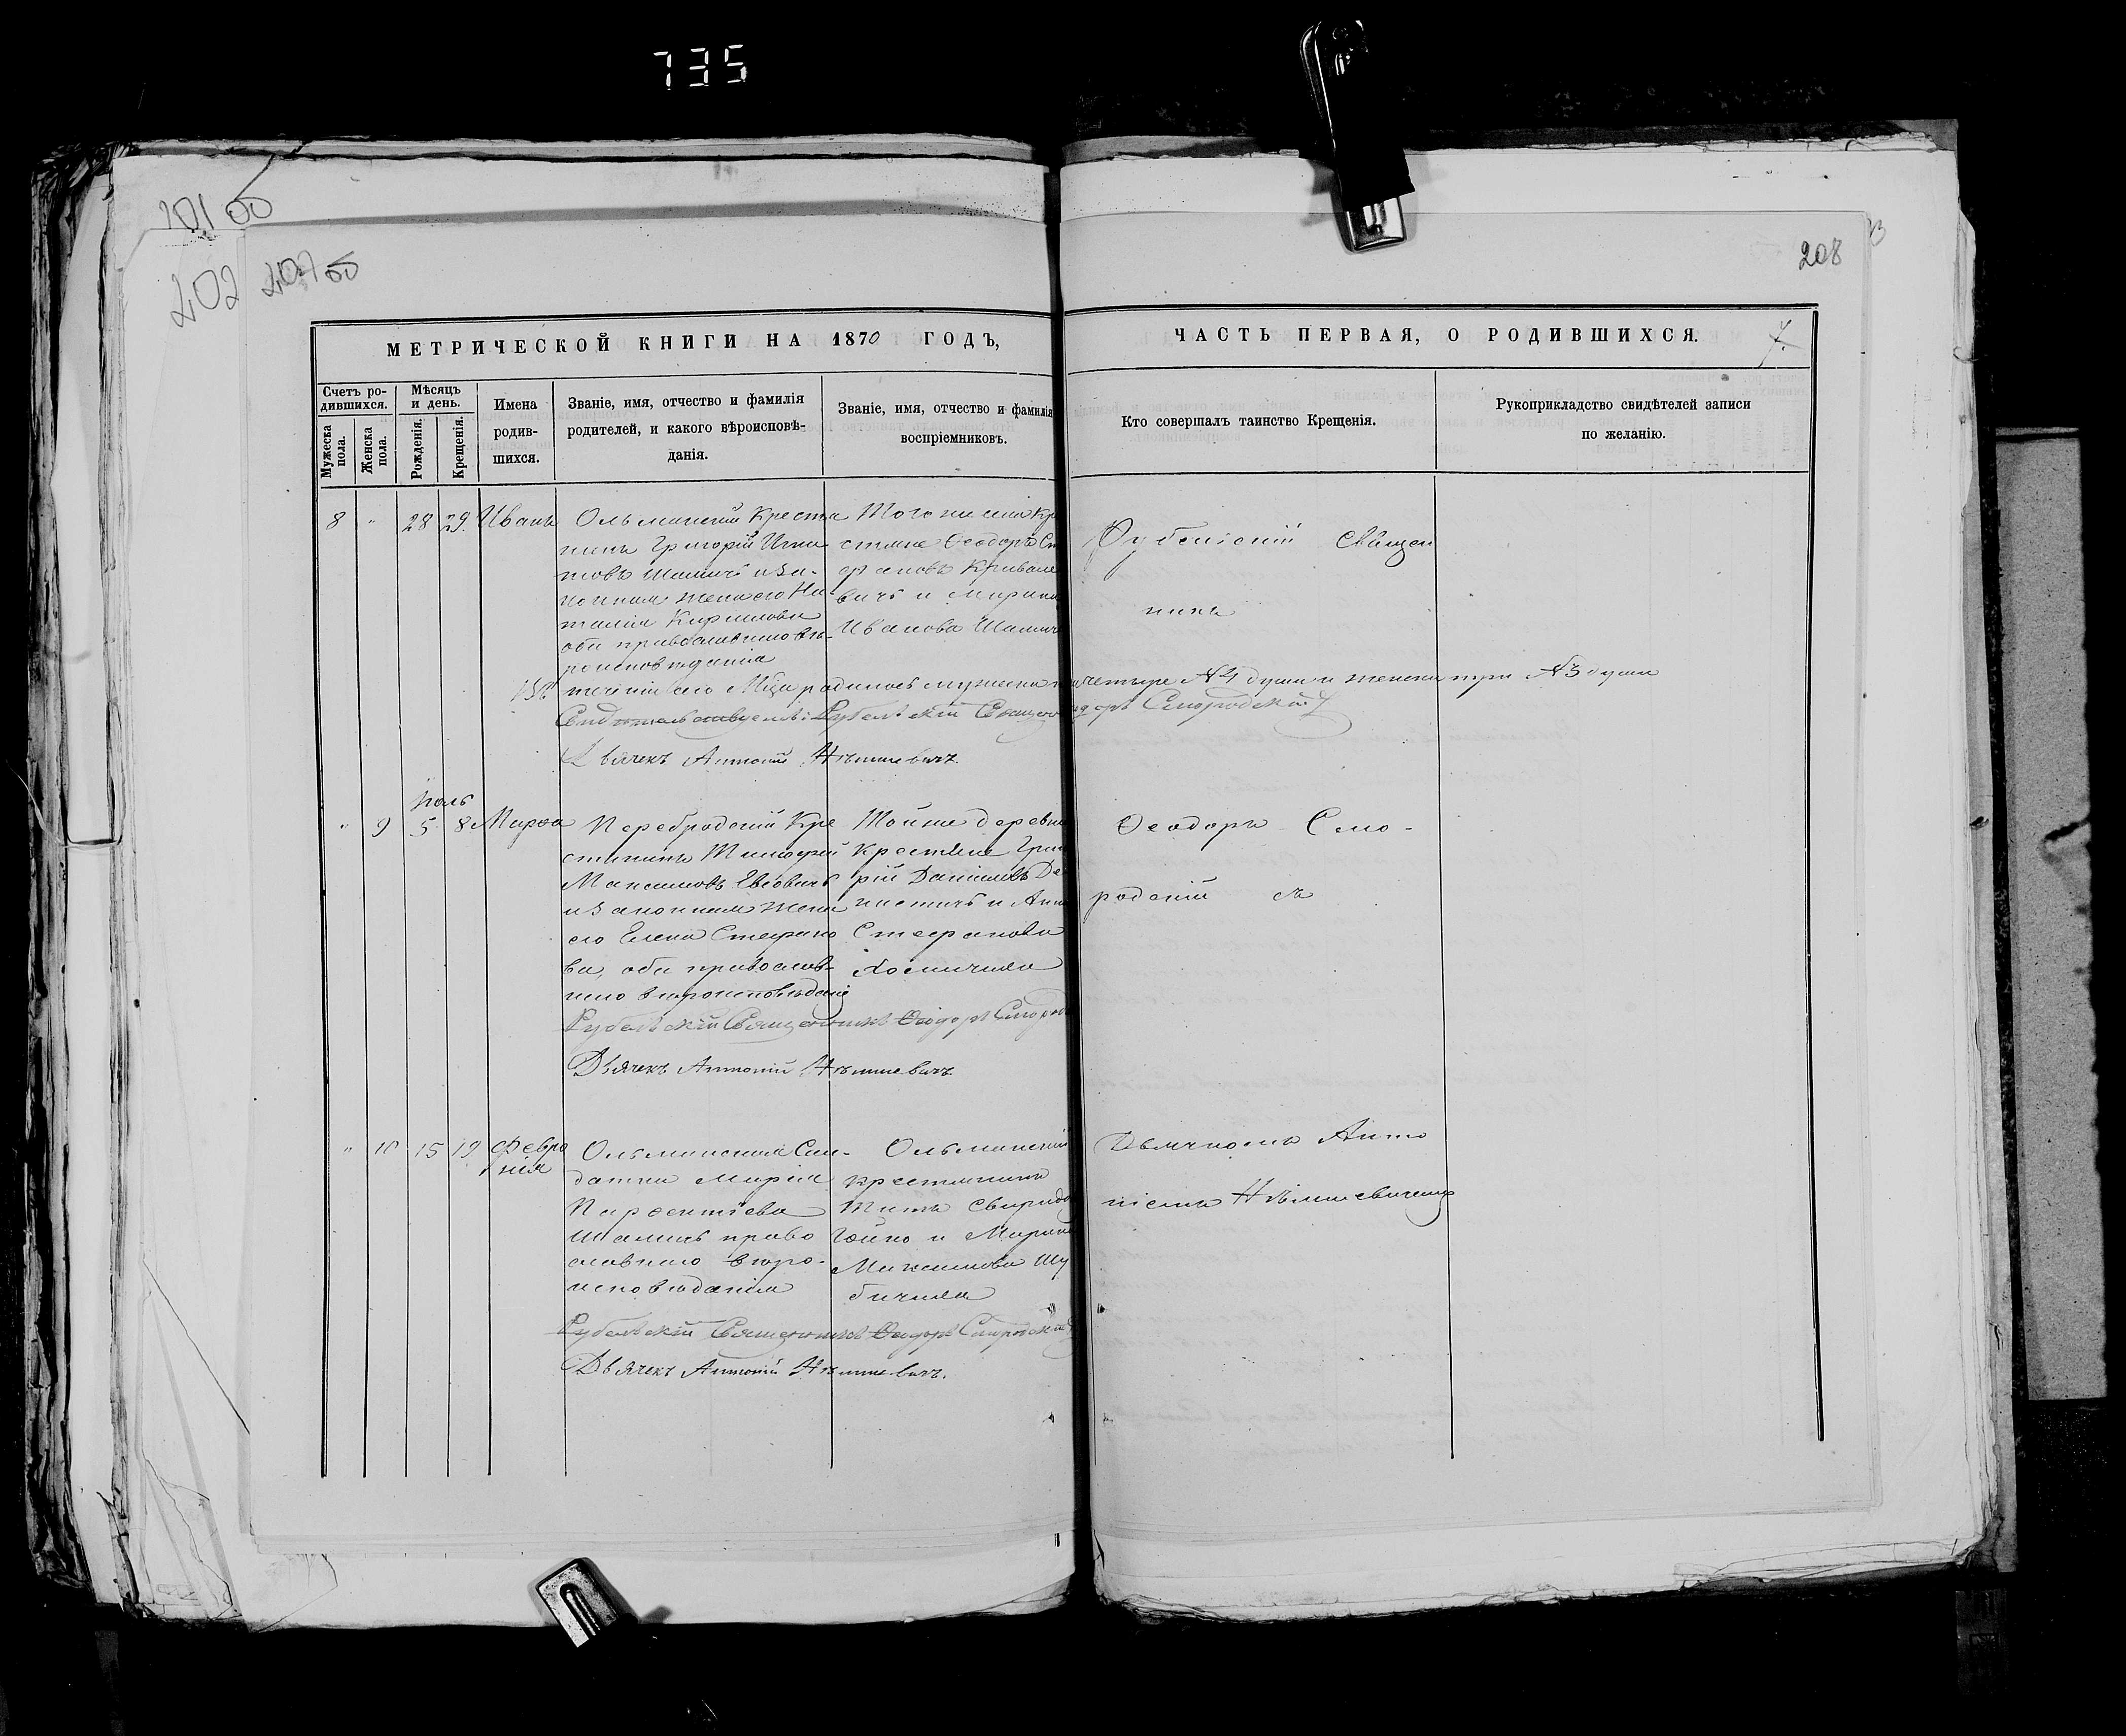 735
201 об
202 207 об
208
МЕТРИЧЕСКОЙ КНИГИ НА 1870 ГОДЪ,
ЧАСТЬ ПЕРВАЯ, О РОДИВШИХСЯ.
7.
Счетъ родившихся.
Мужеска пола.
Женска пола.
Мѣсяцъ и день.
Рожденія.
Крещенія.
Имена
родив-
шихся.
Званіе, имя, отчество и фамилія
родителей, и какого вѣроисповѣ-
данія.
Званіе, имя, отчество и фамилія
воспріемниковъ.
Кто совершалъ таинство Крещенія.
Рукоприкладство свидѣтелей записи
по желанію.
8 " 28 29. Иванъ
Ольманскій Крестья
нинъ Григорій Игна
товъ Шаличъ и за-
конная жена его На
талія Кирилова
оба православнаго вѣ-
роисповѣданія
Того же села Кр
стьяне Ѳеодоръ Ст
фановъ Кривале
вичъ и Марина
Иванова Шалич
Рубельскій Священ
никъ
Въ теченіи сего Мца родилось мужеска четыре №4 души и женска три №3 души
Свидѣтельствуемъ: Рубельскій Священ Ѳеодоръ Смородскій
Дьячекъ Антоній Нѣмшевичъ
Іюль
" 9 5 8 Марѳа
Перебродскій Кре
стьнинъ Тимоѳей
Максимовъ Евсовичъ
и законная жена
его Елена Стефано
ва, оба православ-
наго вѣроисповѣданіе
Тойже деревни
Крестьяне Григ
рій Даніиловъ Де
нистичъ и Анна
Стефанова
Хомичиха
Ѳеодоръ Смо-
родскій съ
Рубельскій Священникъ Ѳеодоръ Смород
Дьячекъ Антоній Нѣмшевичъ
" 10 15 19 Февро
нія
Ольманская Сол-
датка Марія
Парѳентіева
Шаличъ право
славнаго вѣро-
исповѣданія
Ольманскій
крестьянинъ
Титъ Свиридо
Гойко и Марина
Максимова Шу
бичиха
Дьячкомъ Анто
ніемъ Нѣмшевичемъ
Рубельскій Священникъ Ѳеодоръ Смородскій
Дьячекъ Антоній Нѣмшевичъ.